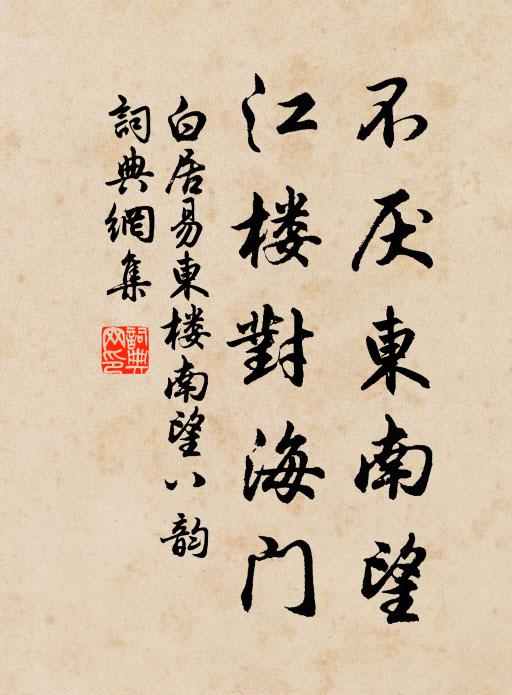 不厌東南望
江楼對海门
白居易東楼南望八韵
詞典網集
詞典
网印